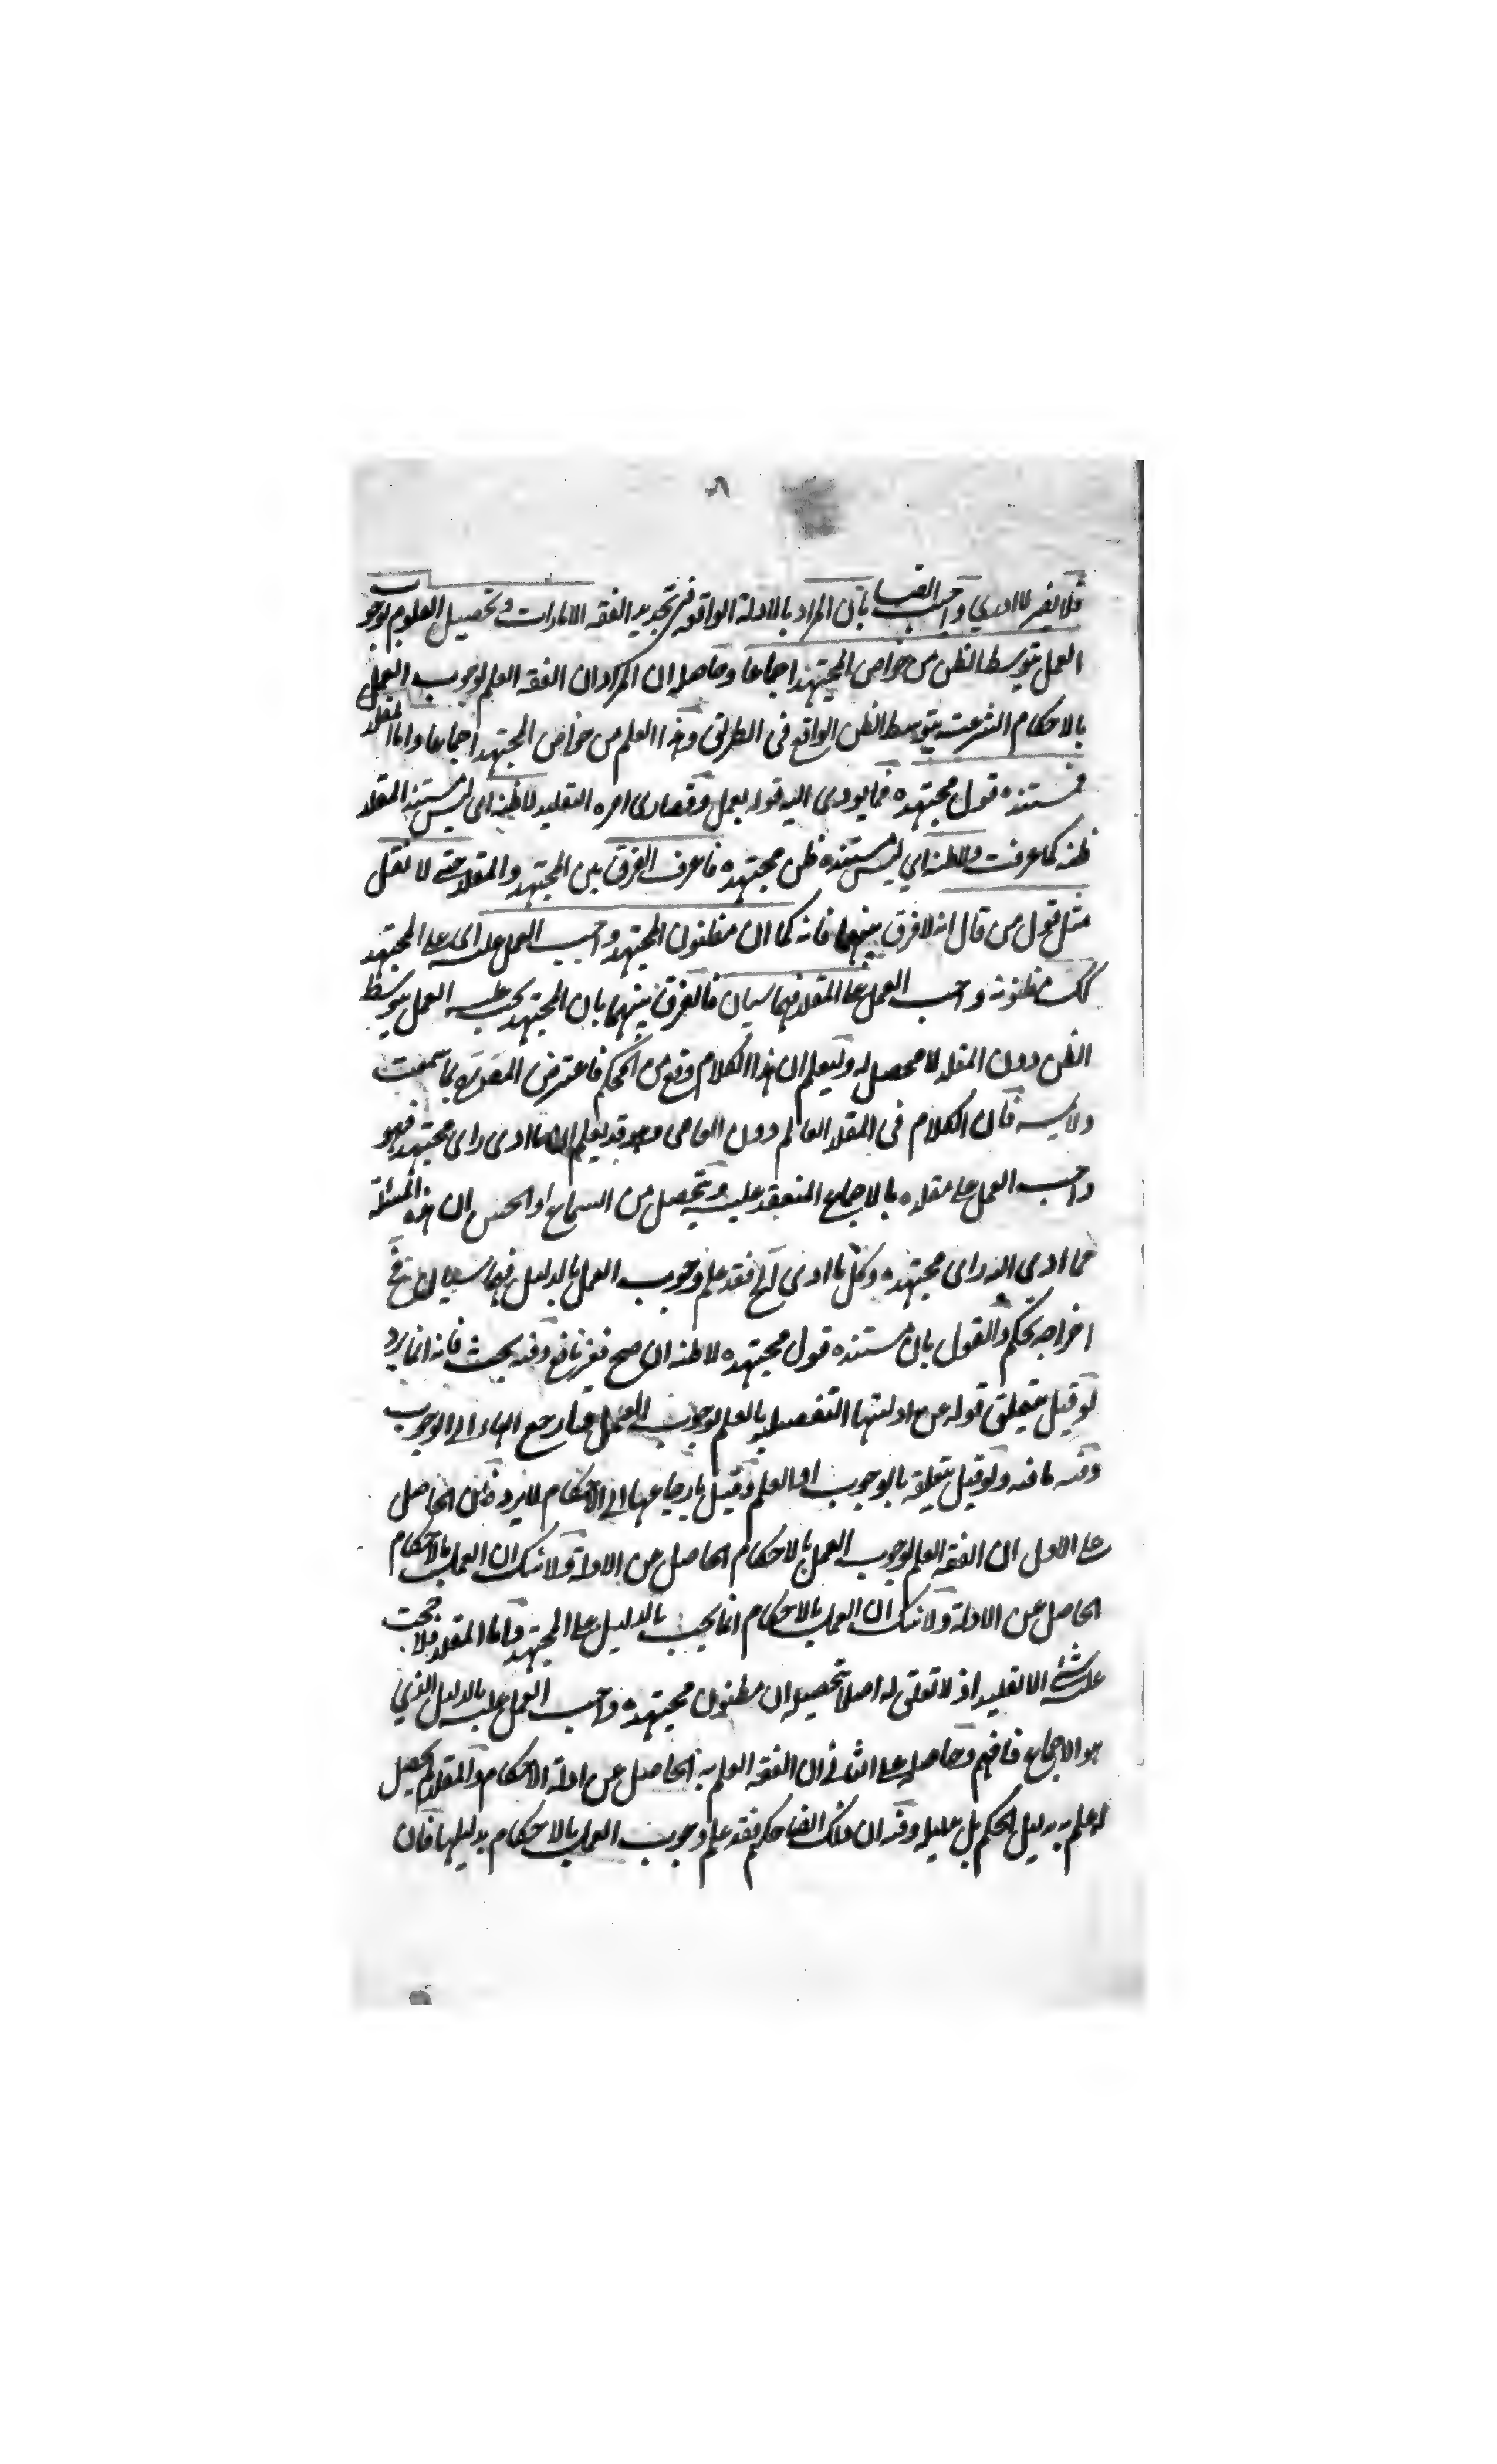 ٨
فلا يضر لا ادري واجيب ايضا بان المراد بالادلة الواقعة في تحديد الفقه الامارات وتحصيل العلوم بوجوب
العمل بتوسط الظن من خواص المجتهد اجماعا وحاصله ان المراد ان الفقه العلم بوجوب العمل
بالاحكام الشرعية بتوسط الظن الواقع في الطريق وهذا العلم من خواص المجتهد اجماعا واما المقلد
فمستنده قول مجتهده فما يودى اليه قوله يعمل وقصارى امره التقليد لا ظنه اي ليس مستند المقلد
ظنه كما عرفت ولا ظنه اي ليس مستنده ظن مجتهده فاعرف الفرق بين المجتهد والمقلد حتى لا تقل
مثل قول من قال انه لا فرق بينهما فانه كما ان مظنون المجتهد واجب العمل عليه اى على المجتهد
كك مظنونه واجب العمل على المقلد فهما سيان فالفرق بينهما بان المجتهد يجب عليه العمل بتوسط
الظن دون المقلد لا محصل له وليعلم ان هذا الكلام وقع من المحكم فاعترض المص بما سمعت
ولا فان الكلام في المقلد العالم دون العامى وهو قد يعلم ان ما ادى راى مجتهد فهو
واجب العمل على مقلده بالاجماع المنعقد عليه ويتحصل من السماع او الحس ان هذه المسئلة
مما ادى اليه راى مجتهده وكل ما ادى الخ فقد علم وجوب العمل بالدليل فهما سيان فى
اخراجه تحكم والقول بان مستنده قول مجتهده لا ظنه ان صح فغير نافع وفيه بحث فانه انما يرد
لو قيل بتعلق قوله عن ادلتها التفصيلية بالعلم بوجوب العمل وبارجع الهاء الى الوجوب
وفيه ما فيه ولو قيل بتعلقه بالوجوب او العلم وقيل بارجاعها الى الاحكام لا يرد فان الحاصل
على الاول ان الفقه العلم بوجوب العمل بالاحكام الحاصل عن الادلة ولا شك ان العمل بالاحكام
الحاصل عن الادلة ولا شك ان العمل بالاحكام انما يجب بالدليل على المجتهد واما المقلد فلا يجب
عليه شئ الا تقليد اذ لا تعلق له اصلا بتحصيله ان مظنون مجتهده واجب العمل عليه بالدليل الذي
هو الاجماع فافهم وحاصله على الثاني ان الفقه العلم به الحاصل عن ادلة الاحكام والمقلد لم يحصل
له علم به بدليل الحكم بل بدليله وفيه ان ذلك ايضا حكم فقد علم وجوب العمل بالاحكام بدليلها فان